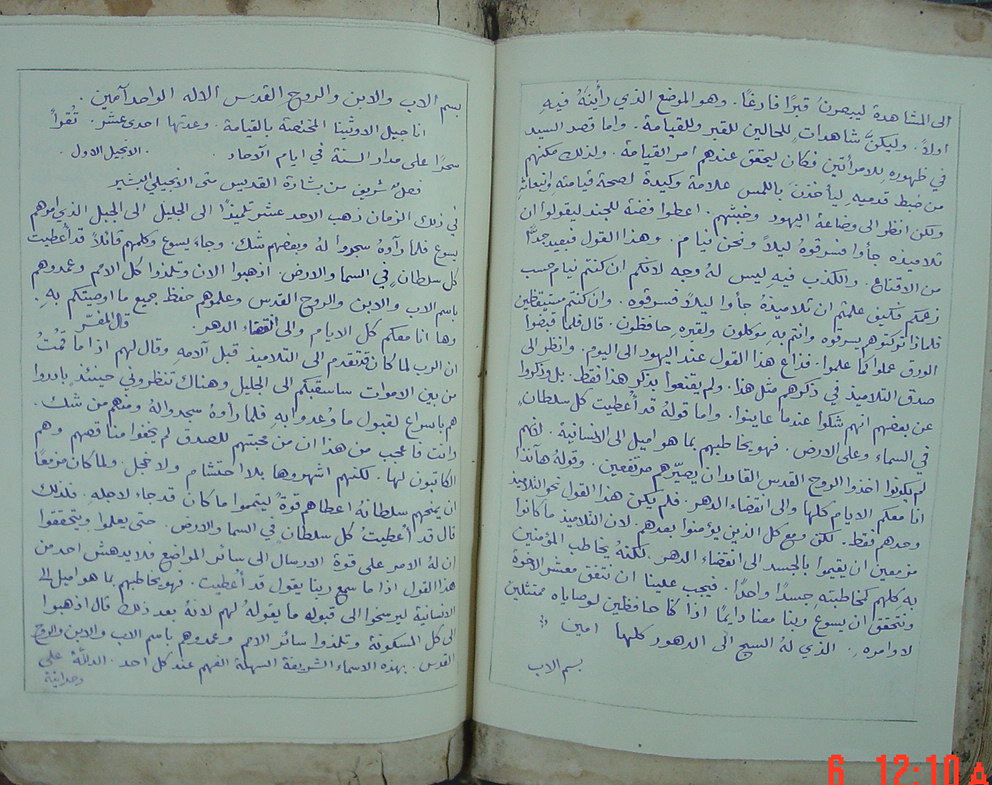 الى المشاهدة ليبصرن قبرًا فارغًا . وهو الموضع الذي رأينهُ فيهِ
اولاً . وليكنَّ شاهدات للحالين للقبر وللقيامة . واما قصد السيد
في ظهوره للامرأتين فكان ليحقق عندهم امر القيامة . ولذلك مكنهم
من ضبط قدميهِ ليأخذن باللمس علامة وكيدة لصحة قيامته وانبعاثه
ولكن انظر الى وضاعة اليهود وخبثهم . اعطوا فضة للجند ليقولوا ان
تلاميذه جاءوا فسرقوهُ ليلاً ونحن نيام . وهذا القول فبعيد جدًّا
من الاقناع . والكذب فيهِ ليس لهُ وجه لانكم ان كنتم نيام حسب
زعمكم فكيف علمتم ان تلاميذهُ جاءوا ليلاً فسرقوه . وان كنتم مستيقظين
فلماذا تركتوهم يسرقوه وانتم به موكلون ولقبره حافظون . قال فلما قبضوا
الورق عملوا كما علموا . فذاع هذا القول عند اليهود الى اليوم . وانظر الى
صدق التلاميذ في ذكرهم مثل هذا . ولم يقنعوا بذكر هذا فقط . بل وذكروا
عن بعضهم انهم شكوا عندما عاينوا . واما قولهُ قد أعطيت كل سلطان
في السماء وعلى الارض . فهو يخاطبهم بما هو اميل الى الانسانية . لانهم
لم يكونوا اخذوا الروح القدس القادر ان يصيّرهم مرتفعين . وقولهُ هانذا
انا معكم الايام كلها والى انقضاء الدهر . فلم يكن هذا القول نحو التلاميذ
وحدهم فقط . لكن ومع كل الذين يؤمنوا بعدهم . لان التلاميذ ما كانوا
مزمعين ان يقيموا بالجسد الى انقضاء الدهر . لكنهُ يخاطب المؤمنين
به كلهم كمخاطبته جسدًا واحدًا . فيجب علينا ان نتفق معشر الاخوة
ونتحقق ان يسوع ربنا معنا دايمًا اذا كنا حافظين لوصاياه ممتثلين
لاوامره . الذي لهُ السبح الى الدهور كلها امين
بسم الاب
بسم الاب والابن والروح القدس الاله الواحد آمين .
اناجيل الاوثينا المختصة بالقيامة . وعدتها احدى عشر . تُقرأ
سحرًا على مدار السنة في ايام الآحاد . الانجيل الاول .
فصلٌ شريف من بشارة القديس متى الانجيلي البشير
في ذلك الزمان ذهب الاحد عشر تلميذًا الى الجليل الى الجبل الذي امرهم
يسوع فلما رأوهُ سجدوا لهُ وبعضهم شك . وجاء يسوع وكلمهم قائلاً قد أعطيت
كل سلطان في السما والارض . اذهبوا الان وتلمذوا كل الامم وعمدوهم
باسم الاب والابن والروح القدس وعلموهم حفظ جميع ما اوصيتكم به .
وها انا معكم كل الايام والى انقضاء الدهر . قال المفسّر
ان الرب لما كان قد تقدم الى التلاميذ قبل آلامه وقال لهم اذا ما قمتُ
من بين الاموات ساسبقكم الى الجليل وهناك تنظروني حينئذٍ بادروا
هم باسراع لقبول ما وُعدوا به فلما رأوهُ سجدوا لهُ ومنهم من شك .
وانت فاعجب من هذا ان من محبتهم للصدق لم يخفوا مناقصهم وهم
الكاتبون لها . لكنهم اشهروها بلا احتشام ولا خجل . ولما كان مزمعًا
ان يمنحهم سلطانهُ اعطاهم قوةً ليتمموا ما كان قد جاء لاجله . فلذلك
قال قد أعطيت كل سلطان في السما والارض . حتى يعلموا ويتحققوا
ان لهُ الامر على قوة الارسال الى سائر المواضع فلا يدهش احد من
هذا القول اذا ما سمع ربنا يقول قد أعطيت . فهو يخاطبهم بما هو اميل الى
الانسانية ليرسخوا الى قبوله ما يقولهُ لهم لانهُ بعد ذلك قال اذهبوا
الى كل المسكونة وتلمذوا سائر الامم وعمدوهم باسم الاب والابن والروح
القدس . بهذه الاسماء الشريفة السهلة الفهم عند كل احد . الدالّة على
وحدانية
6 12:10 A